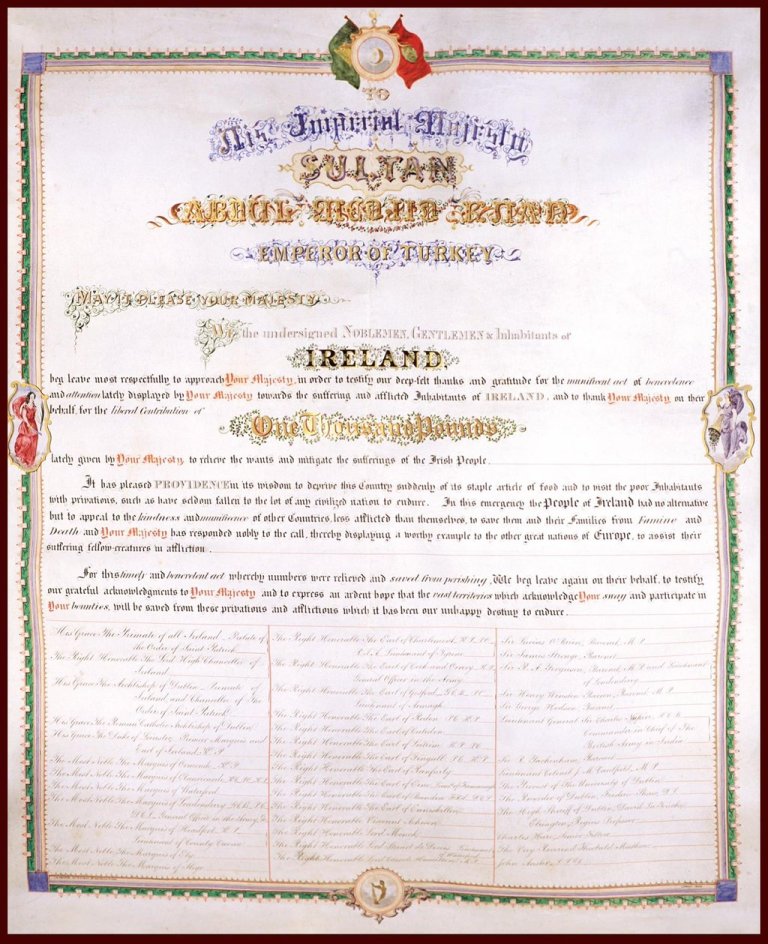 TO
His Imperial Majesty
SULTAN
ABDUL MEDJID KHAN
EMPEROR OF TURKEY
MAY IT PLEASE YOUR MAJESTY
We the undersigned NOBLEMEN, GENTLEMEN & Inhabitants of
IRELAND,
beg leave most respectfully to approach Your Majesty, in order to testify our deep-felt thanks and gratitude for the munificent act of benevolence
and attention lately displayed by Your Majesty towards the suffering and afflicted Inhabitants of IRELAND, and to thank Your Majesty on their
behalf, for the liberal Contribution of
One Thousand Pounds
lately given by Your Majesty, to relieve the wants and mitigate the sufferings of the Irish People.
It has pleased PROVIDENCE in its wisdom to deprive this Country suddenly of its staple article of food and to visit the poor Inhabitants
with privations, such as have seldom fallen to the lot of any civilized nation to endure. In this emergency the People of Ireland had no alternative
but to appeal to the kindness and munificence of other Countries, less afflicted than themselves, to save them and their Families from Famine and
Death and Your Majesty has responded nobly to the call, thereby displaying a worthy example to the other great nations of Europe, to assist their
suffering fellow-creatures in affliction.
For this timely and benevolent act whereby numbers were relieved and saved from perishing, We beg leave again on their behalf, to testify
our grateful acknowledgments to Your Majesty and to express an ardent hope that the vast territories which acknowledge Your sway and participate in
Your bounties, will be saved from these privations and afflictions which it has been our unhappy destiny to endure.
His Grace The Primate of all Ireland, Prelate of
the Order of Saint Patrick
The Right Honorable The Lord High Chancellor of
Ireland
His Grace The Archbishop of Dublin, Primate of
Ireland and Chancellor of The
Order of Saint Patrick
His Grace The Roman Catholic Archbishop of Dublin
His Grace The Duke of Leinster, Premier Marquess and
Earl of Ireland
The Most Noble The Marquess of Ormonde, K.P.
The Most Noble The Marquess of Clanricarde
The Most Noble The Marquess of Waterford
The Most Noble The Marquess of Londonderry
General Officer in the Army
The Most Noble The Marquess of Headfort
Lieutenant of County Cavan
The Most Noble The Marquess of Ely
The Most Noble The Marquess of Sligo
The Right Honorable The Earl of Charlemont
Lieutenant of Tyrone
The Right Honorable The Earl of Cork and Orrery
General Officer in the Army
The Right Honorable The Earl of Gosford
Lieutenant of Armagh
The Right Honorable The Earl of Roden
The Right Honorable The Earl of Caledon
The Right Honorable The Earl of Leitrim
The Right Honorable The Earl of Fingall
The Right Honorable The Earl of Ranfurly
The Right Honorable The Earl of Erne
The Right Honorable The Earl of
The Right Honorable The Earl of Enniskillen
The Right Honorable Viscount
The Right Honorable Lord Monck
The Right Honorable Lord
The Right Honorable Lord
Sir Lucius O'Brien, Baronet, M.P.
Sir James Stronge, Baronet
Sir R. A. Ferguson, Baronet, M.P. and Lieutenant
of Londonderry
Sir Henry Winston Barron, Baronet, M.P.
Sir George Hodson, Baronet
Lieutenant General Sir Charles Napier
Commander in Chief of The
British Army in India
Sir Pakenham, Baronet
Lieutenant Colonel J. M. Caulfeild, M.P.
The Provost of The University of Dublin
The Recorder of Dublin, Frederic Shaw
The High Sheriff of Dublin
Regius Professor
Charles
The Very Reverend Theobald Mathew
John Anster, L.L.D.